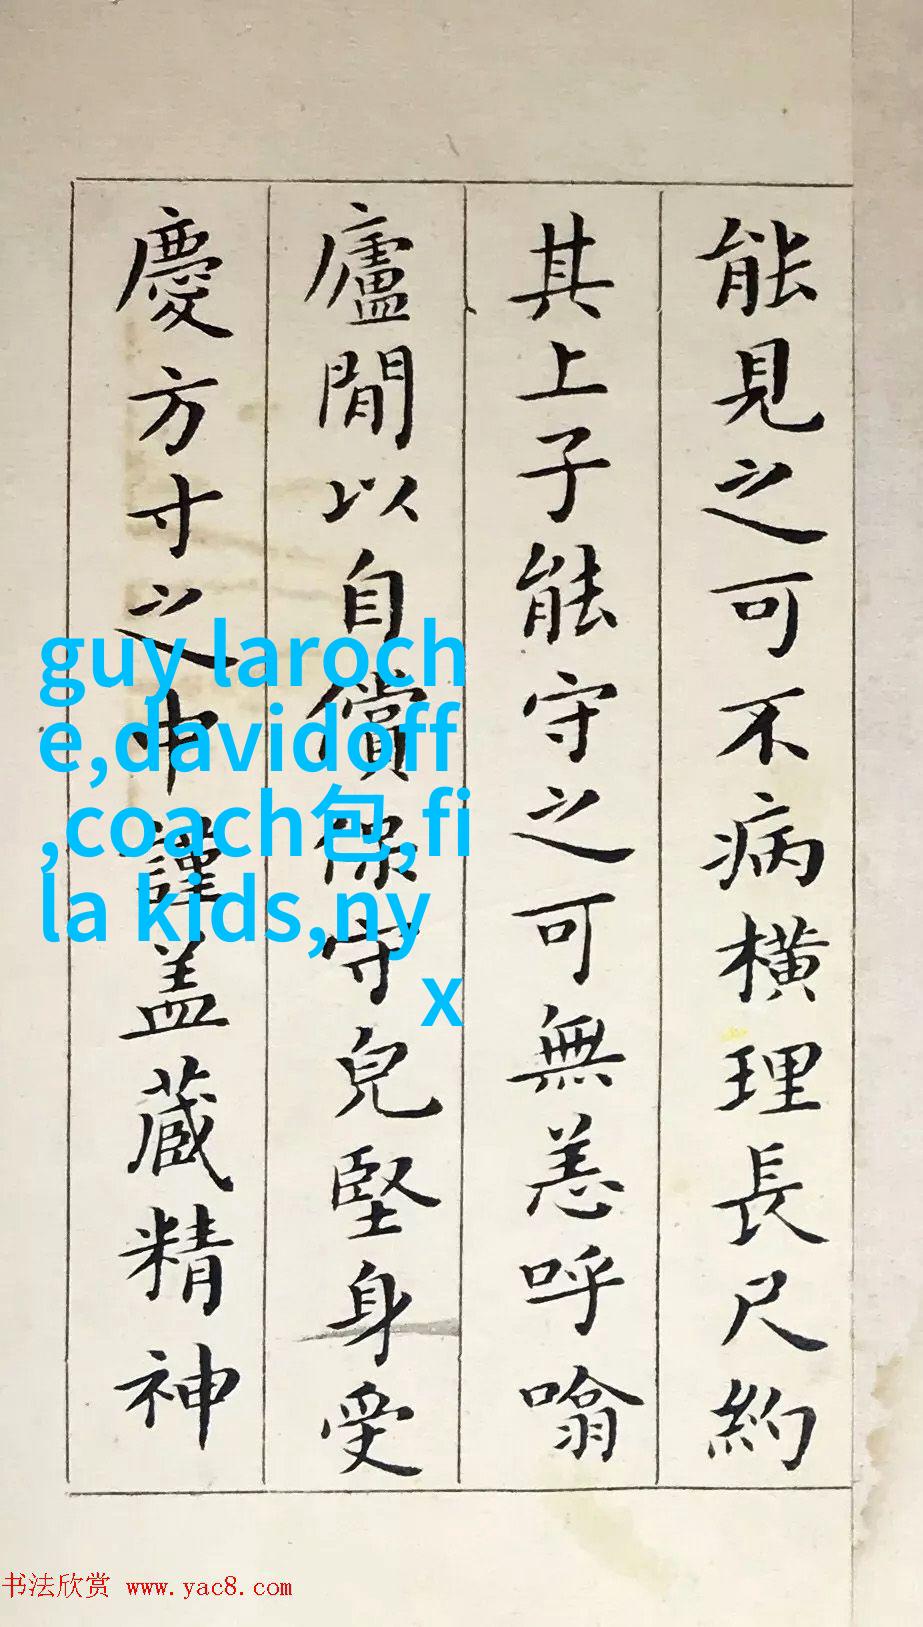 能見之可不病橫理長尺約
其上子能守之可無恙呼噏
廬間以自償保守兒堅身受
慶方寸之中謹蓋藏精神
guy laroch
e,davidoff
,coach包,fi
la kids,ny
x
书法欣赏 www.yac8.com